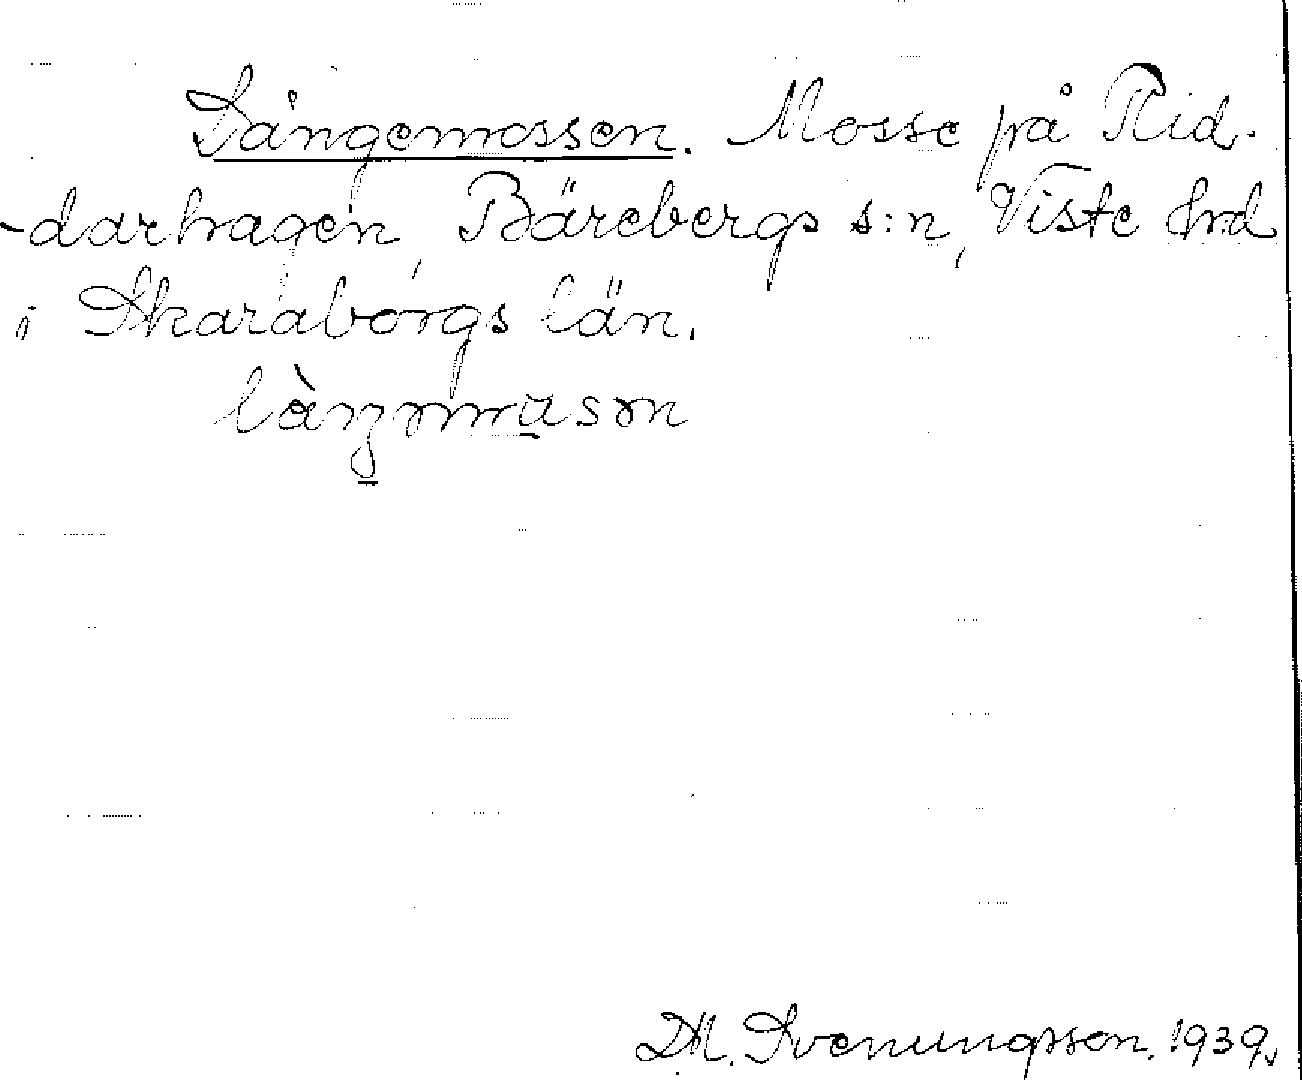 Långemossen. Mosse på Rid-
-darhagen, Bärebergs s:n, Viste hrd
i Skaraborgs län.
D.M. Svenungsson. 1939.